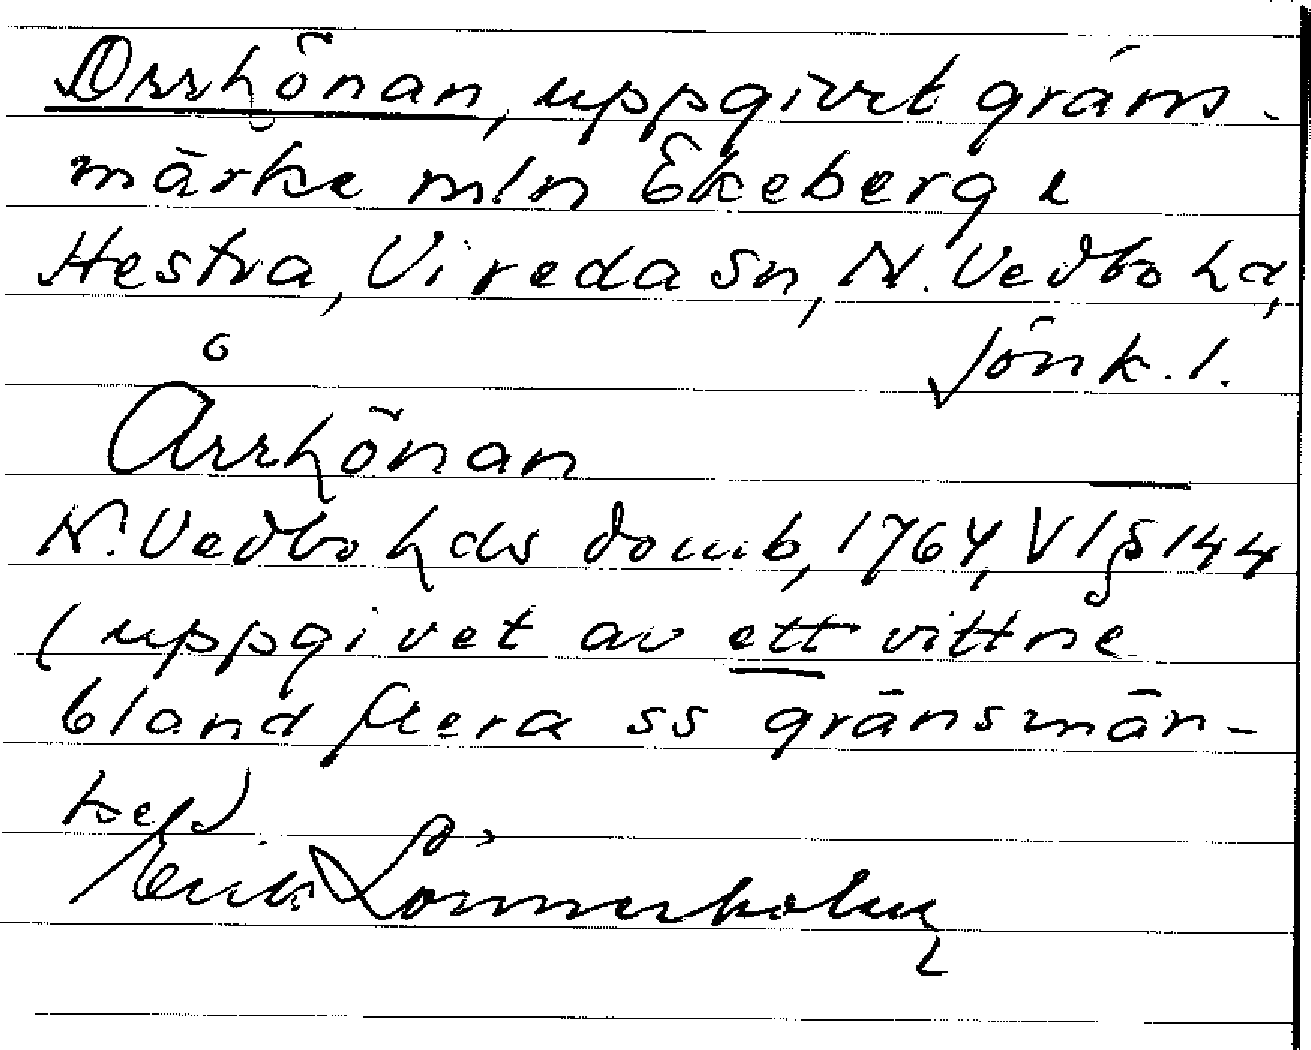 Orrhönan, uppgivet gräns-
märke mln Ekeberg o
Hestra, Vireda sn, N. Vedbo hd,
Jönk. l.
Årrhönan
N. Vedbo hds domb, 1764, V 1 § 144
(uppgivet av ett vittne
bland flera ss gränsmär-
ke)
Erik Lönnerholm